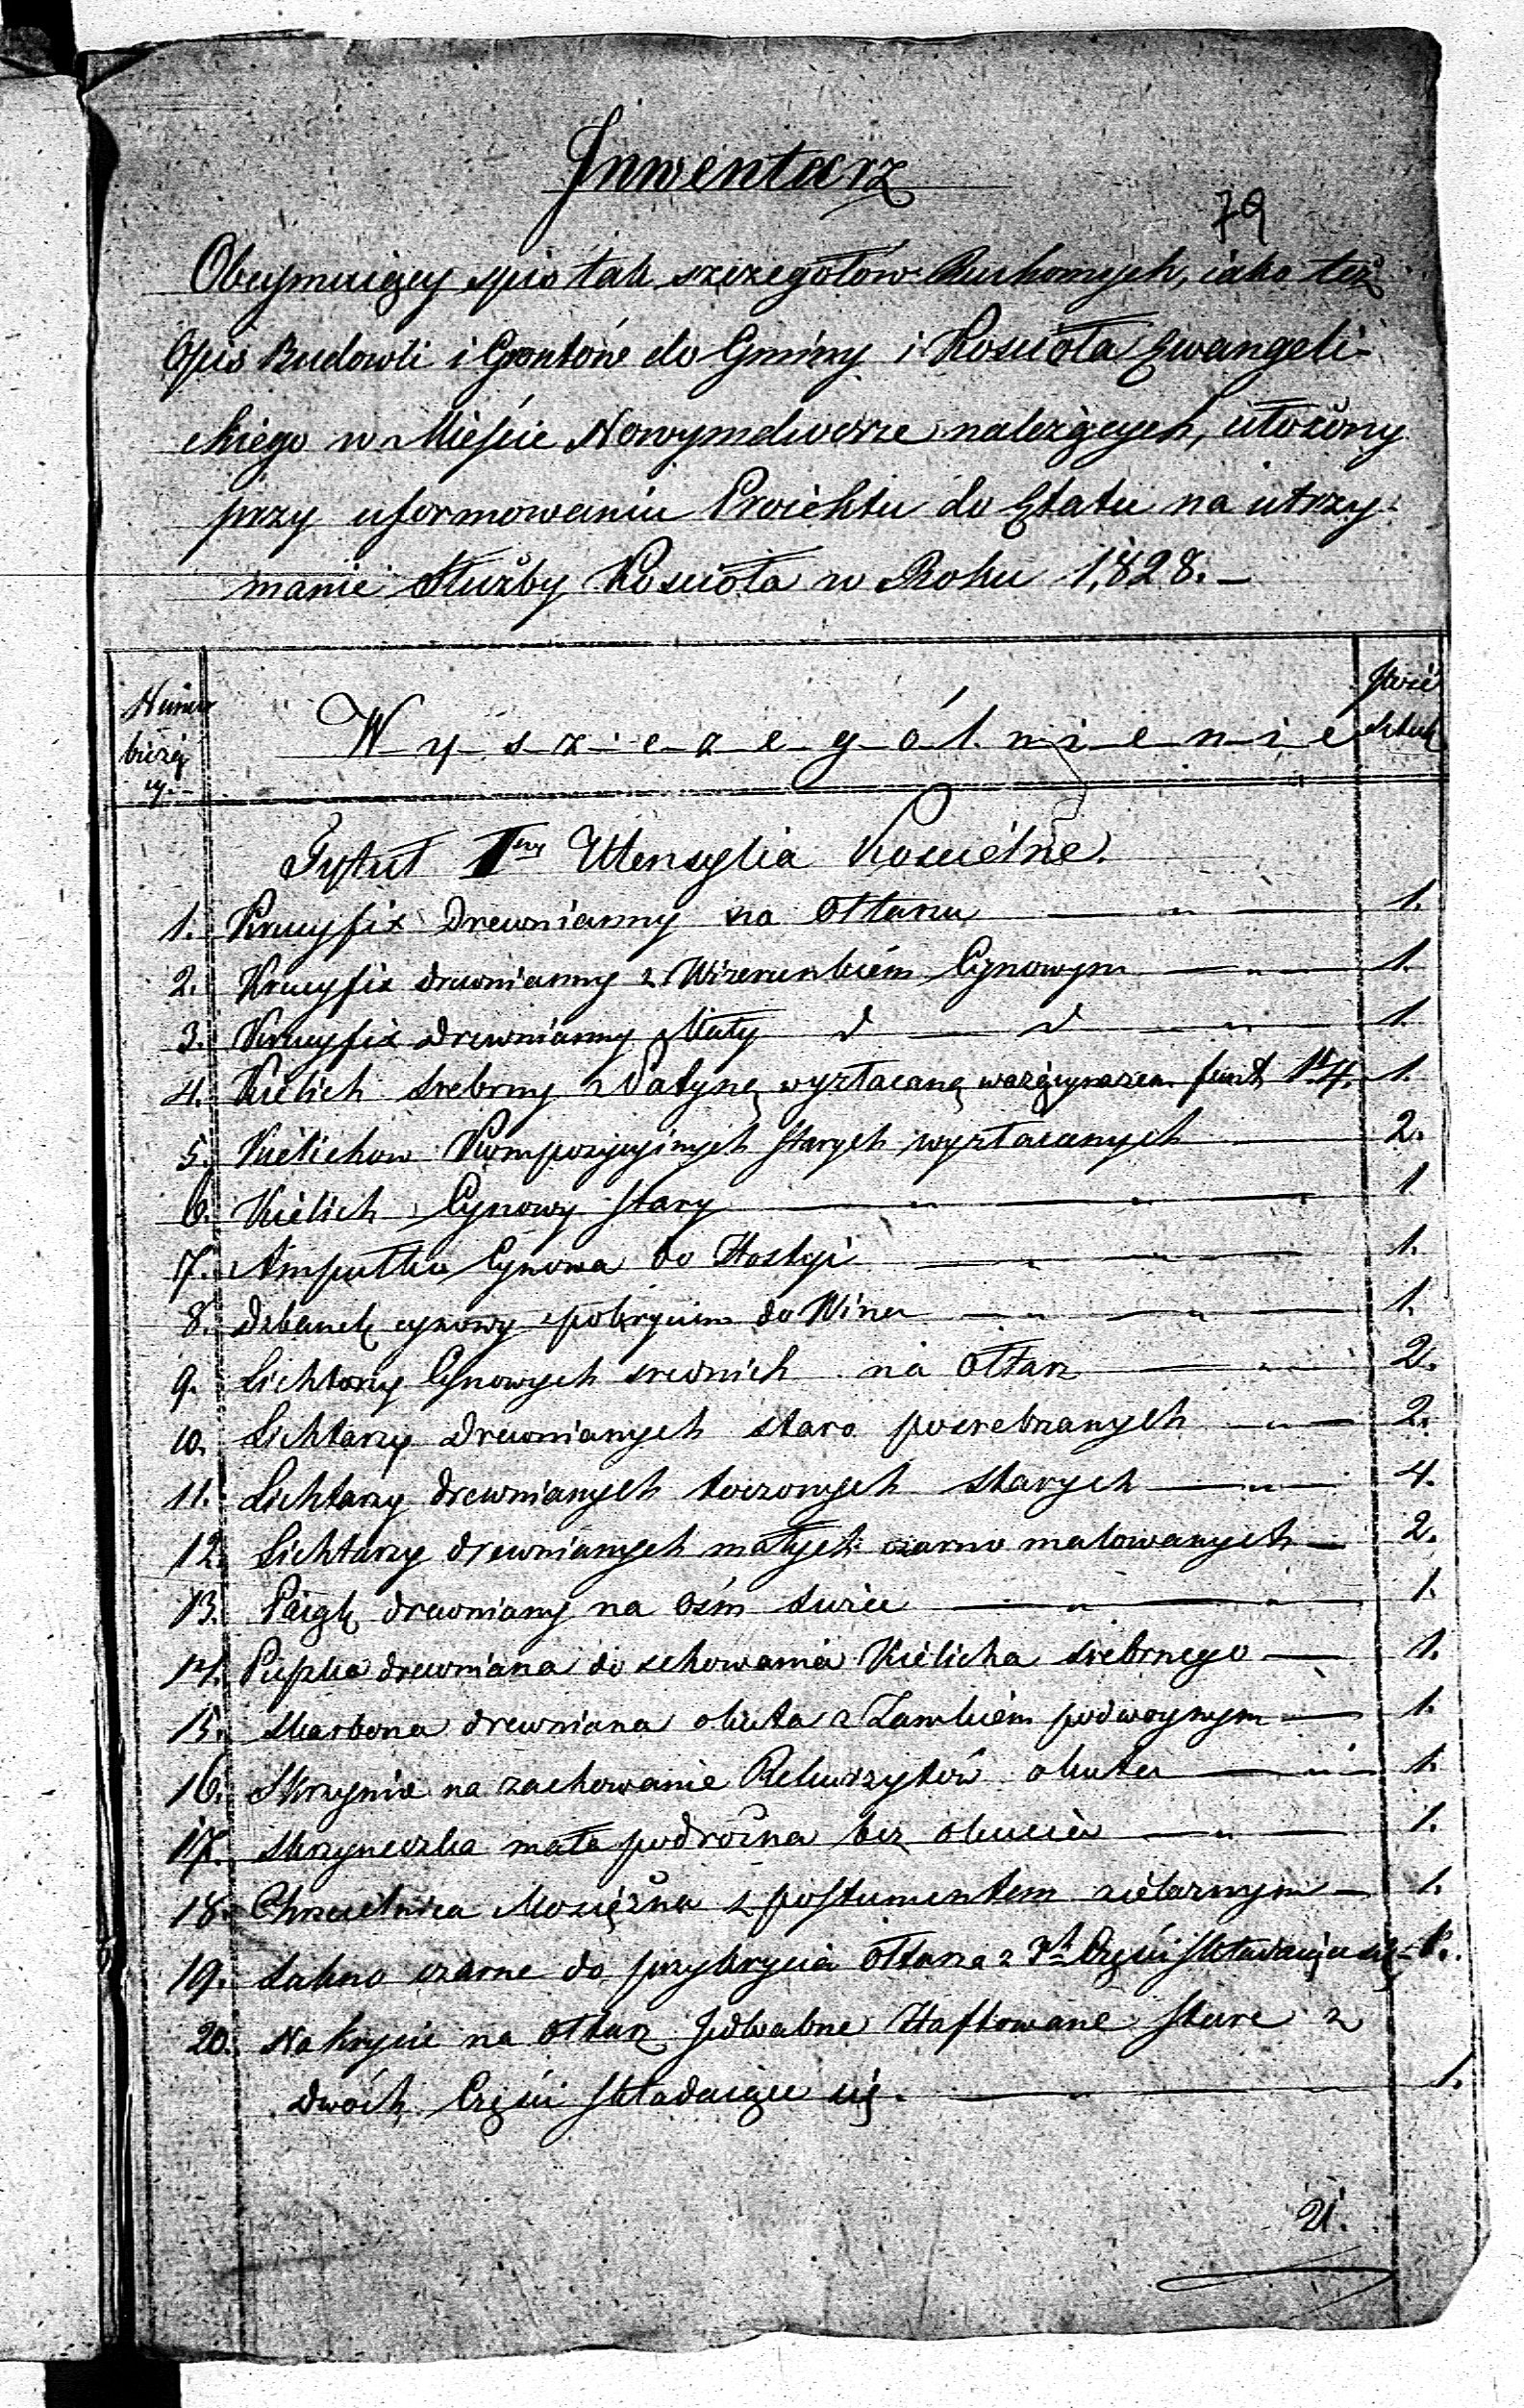 Inwentarz
79
Obeymuiący spis tak szczegołow Ruchomych, iako też
Opis Budowli i Gruntów do Gminy i Koscioła Ewangeli-
ckiego w Mieście Nowymdworze należących, ułożony
przy uformowaniu Proiektu do Etatu na utrzy-
manie Służby Koscioła w Roku 1,828.—
Numer bieżący.
Wyszczególnienie
Ilość Sztuk
Tytuł Iwszy Utensylia Koscielne.
1. Krucyfix Drewnianny na Ołtarzu — „ — 1.
2. Krucyfix drewnianny z Wizerunkiem Cynowym — „ — 1.
3. Krucyfix drewnianny Mały d — d — „ — 1.
4. Kielich srebrny z Patyną wyzłacaną ważący razem funt 1. 1.
5. Kielichow Kompozycyinych starych wyzłacanych — 2.
6. Kielich Cynowy stary — „ — „ — 1
7. Ampułka Cynowa do Hostyi — „ — „ — 1.
8. Dzbanek cynowy z pokryciem do Wina — „ — „ — 1.
9. Lichtarzy Cynowych srednich na Ołtarz — „ — 2.
10. Lichtarzy Drewnianych staro posrebrzanych — „ — 2.
11. Lichtarzy drewnianych toczonych starych — „ — 4.
12. Lichtarzy drewnianych małych czarno malowanych — 2.
13. Paiąk drewniany na ośm swiec — „ — „ — 1.
14. Puszka drewniana do schowania Kielicha srebrnego — 1.
15. Skarbona drewniana okuta z Zamkiem podwoynym — 1.
16. Skrzynia na zachowanie Rekwizytów okuta — „ — 1.
17. Skrzyneczka mała podrożna bez okucia — „ — 1.
18. Chrzcielnica Mosiężna z postumentem żelaznym — 1.
19. Sukno czarne do przykrycia Ołtarza z 3ch Części składaiące się — 1.
20. Nakrycie na Ołtarz Jedwabne Haftowane stare z
dwóch Części składaiące się. — „ — „ — 1.
21.